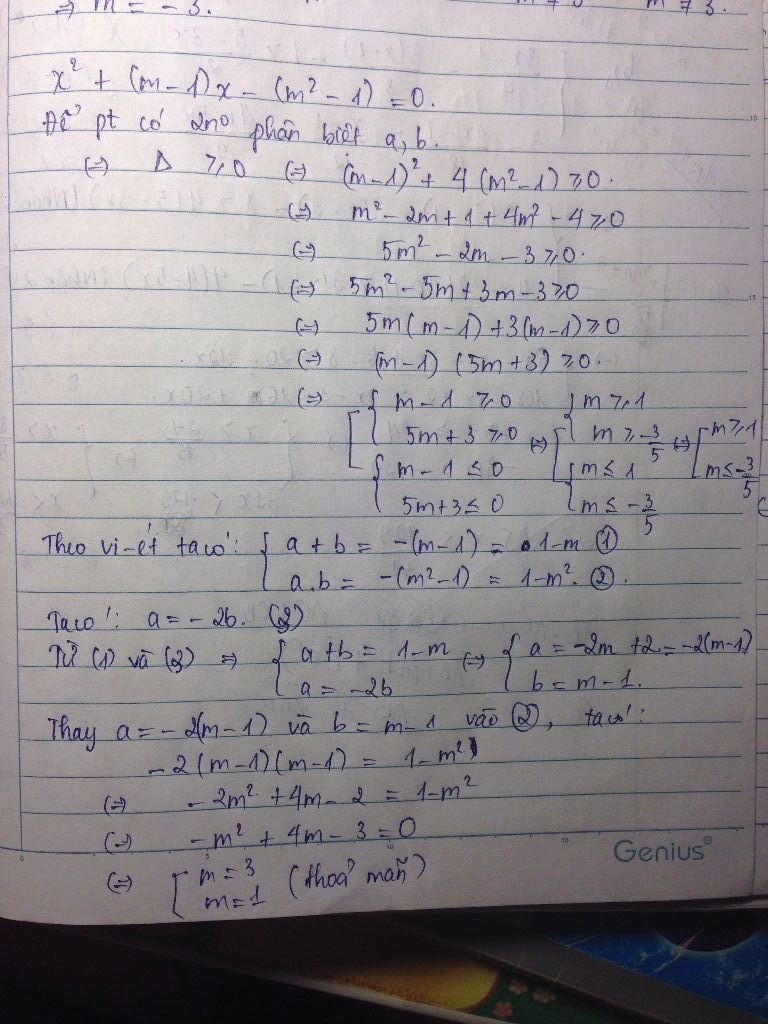 => m = -3. m ≠ 3.
x² + (m-1)x - (m²-1) = 0.
Để pt có 2n⁰ phân biệt a, b.
(=) Δ ⩾ 0 (=) (m-1)² + 4(m²-1) ⩾ 0.
(=) m² - 2m + 1 + 4m² - 4 ⩾ 0
(=) 5m² - 2m - 3 ⩾ 0.
(=) 5m² - 5m + 3m - 3 ⩾ 0
(=) 5m(m-1) + 3(m-1) ⩾ 0
(=) (m-1)(5m+3) ⩾ 0.
(=) [ { m - 1 ⩾ 0 { m ⩾ 1
5m + 3 ⩾ 0 (=) [ m ⩾ -3/5 (=) [ m ⩾ 1
{ m - 1 ≤ 0 { m ≤ 1 m ≤ -3/5
5m + 3 ≤ 0 m ≤ -3/5
Theo vi-ét ta có: { a + b = -(m-1) = 1-m ①
a.b = -(m²-1) = 1-m². ②.
Ta có: a = -2b. (3)
Từ (1) và (3) => { a+b = 1-m (=) { a = -2m +2 = -2(m-1)
a = -2b b = m-1.
Thay a = -2(m-1) và b = m-1 vào ②, ta có:
-2(m-1)(m-1) = 1-m²
(=) -2m² + 4m - 2 = 1-m²
(=) -m² + 4m - 3 = 0
Genius
(=) [ m = 3 (thoả mãn)
m = 1